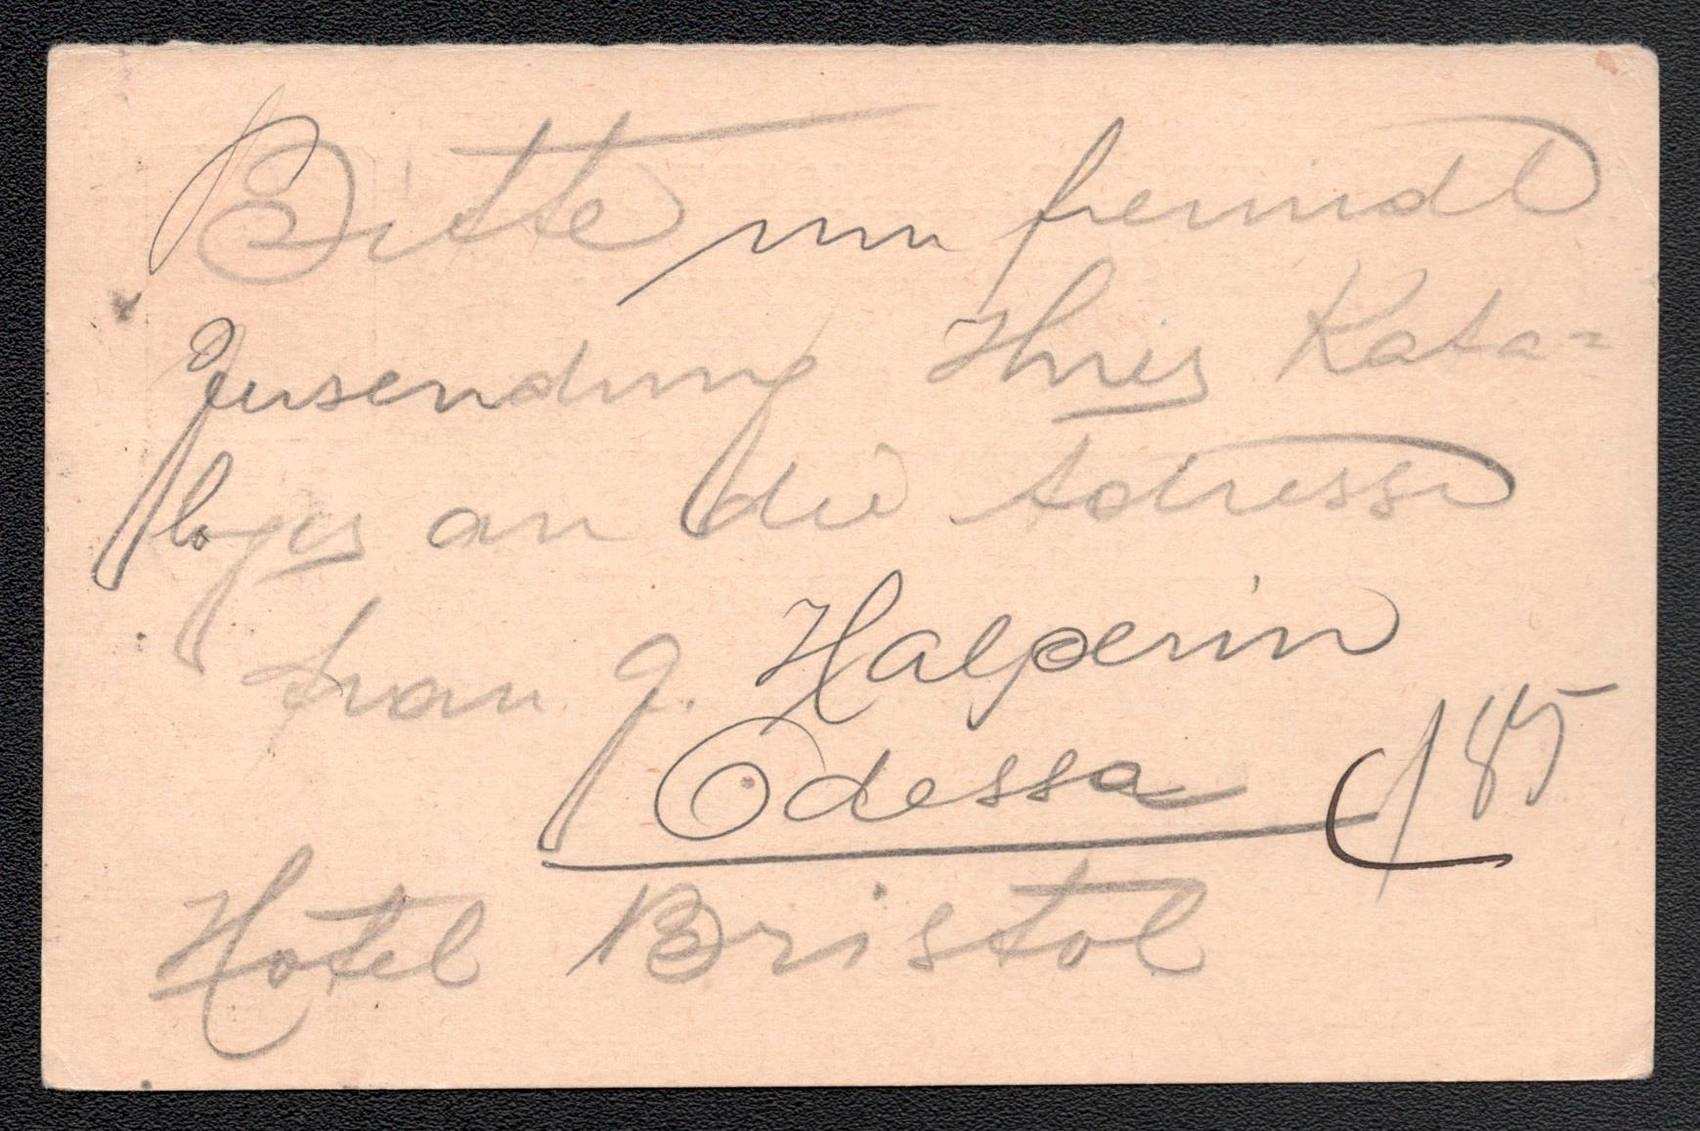 Bitte um freundl
Zusendung Ihres Kata=
loges an die Adresse
frau J. Halperin
Odessa
185
Hotel Bristol